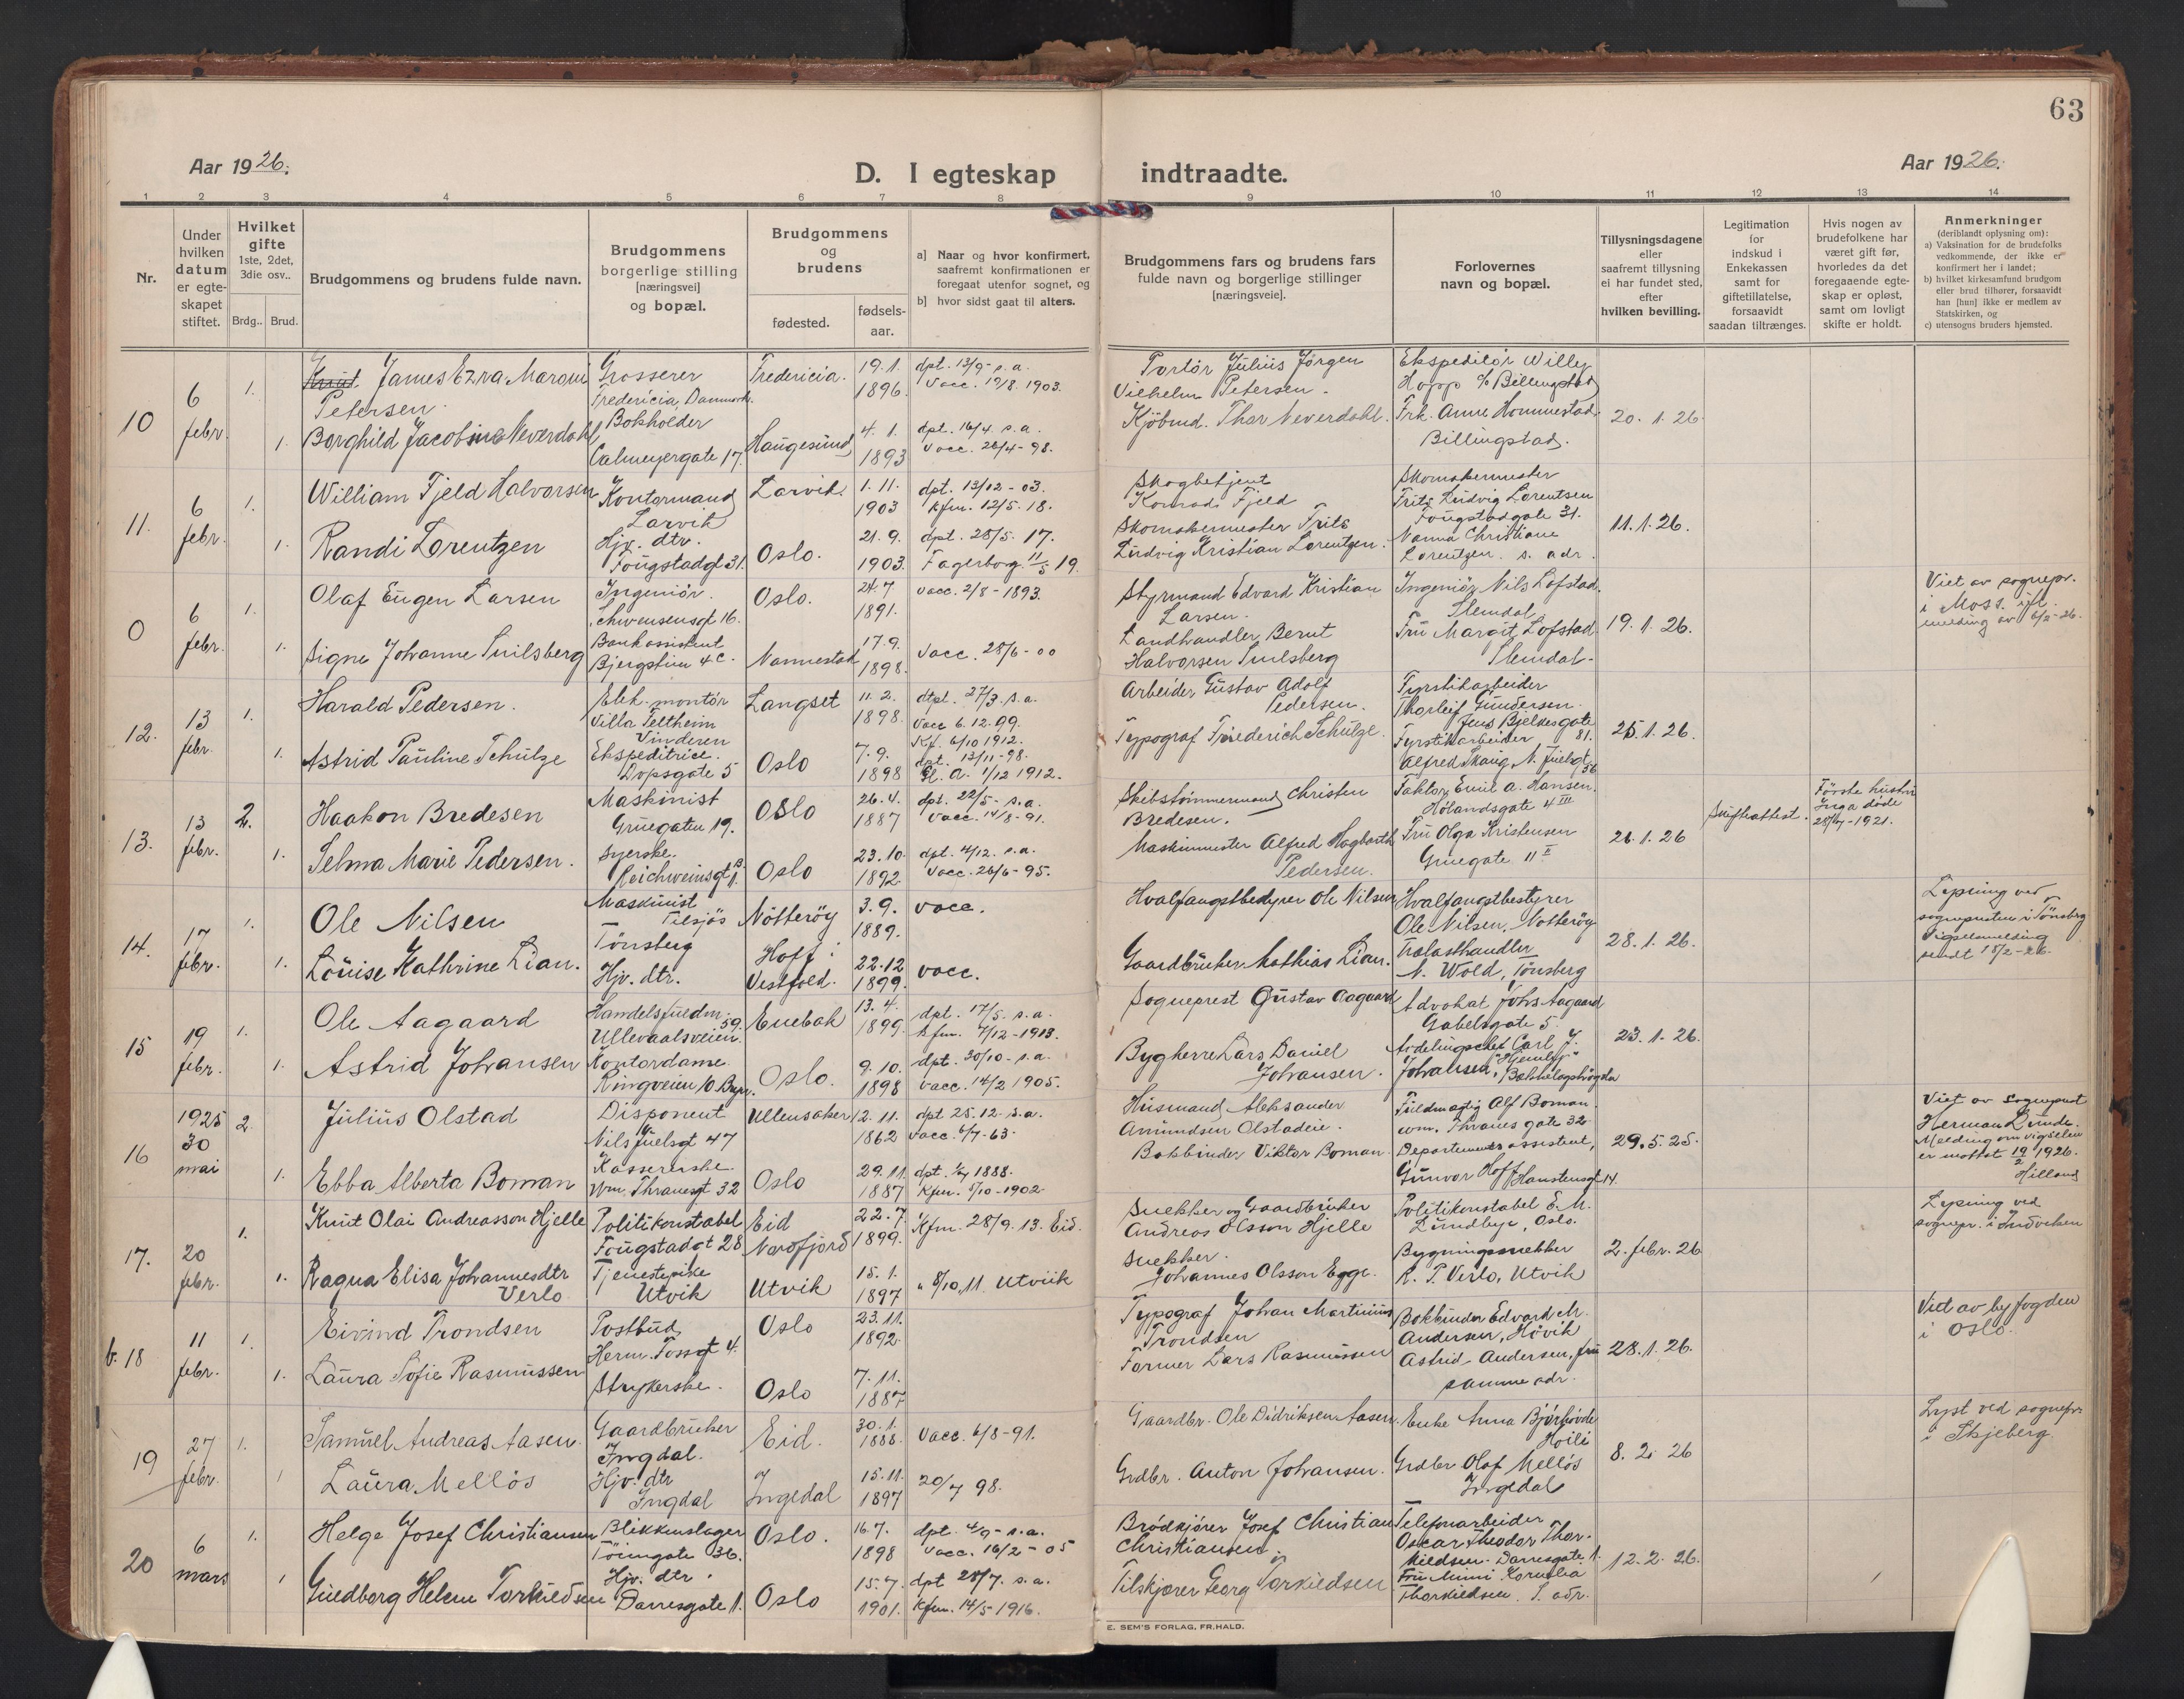 63
Aar 1926.
D. I egteskap indtraadte.
Aar 1926.
1 2 3 4 5 6 7 8 9 10 11 12 13 14
Nr.
Under
hvilken
datum
er egte-
skapet
stiftet.
Hvilket
gifte
1ste, 2det,
3die osv..
Brdg.. Brud.
Brudgommens og brudens fulde navn.
Brudgommens
borgerlige stilling
[næringsvei]
og bopæl.
Brudgommens
og
brudens
fødested.
fødsels-
aar.
a] Naar og hvor konfirmert,
saafremt konfirmationen er
foregaat utenfor sognet, og
b] hvor sidst gaat til alters.
Brudgommens fars og brudens fars
fulde navn og borgerlige stillinger
[næringsveie].
Forlovernes
navn og bopæl.
Tillysningsdagene
eller
saafremt tillysning
ei har fundet sted,
efter
hvilken bevilling.
Legitimation
for
indskud i
Enkekassen
samt for
giftetillatelse,
forsaavidt
saadan tiltrænges.
Hvis nogen av
brudefolkene har
været gift før,
hvorledes da det
foregaaende egte-
skap er opløst,
samt om lovligt
skifte er holdt.
Anmerkninger
(deriblandt oplysning om):
a) Vaksination for de brudefolks
vedkommende, der ikke er
konfirmert her i landet;
b) hvilket kirkesamfund brudgom
eller brud tilhører, forsaavidt
han [hun] ikke er medlem av
Statskirken, og
c) utensogns bruders hjemsted.
10
6
febr.
1.
James Ezra Marqui
Petersen.
Grosserer
Fredericia, Danmark.
Fredericia.
19.1.
1896
dpt. 13/9 - s.a.
Vacc. 19/8. 1903.
Julius Jørgen
Vilhelm Petersen.
Ekspeditør Willy
Hopp % Billingstad
20.1.26.
1.
Borghild Jacobine Neverdahl
Bokholder
Calmeyergate 17.
Haugesund
4.1.
1893
dpt. 16/4 s.a.
Vacc. 26/4 - 98.
Kjöbmd. Thor Neverdahl.
Frk. Anne Hommestad
Billingstad.
11.
6
febr.
1.
William Fjeld Halvorsen
Kontormand
Larvik
Larvik.
1.11.
1903
dpt. 13/12 - 03.
kfm. 12/5. 18.
Skogbetjent
Konrad Fjeld
Skomakermester
Frits Ludvig Lorentsen
Fougstadgate 31.
11.1.26.
1.
Randi Lorentzen
Hjv. dtr.
Fougstadgt 31.
Oslo.
21.9.
1903.
dpt. 28/5. 17.
Fagerborg 11/5 19.
Skomakermester Frits
Ludvig Kristian Lorentzen.
Nanna Christiane
Lorentzen. s. adr.
0
6
febr.
1.
Olaf Eugen Larsen
Ingeniör.
Schwensensgt 16.
Oslo.
24.7
1891.
Vacc. 2/8 - 1893.
Styrmand Edvard Kristian
Larsen.
Ingeniör Nils Lofstad.
Slemdal.
19.1.26.
Viet av sognepr.
i Moss. ifl.
melding av 6/2-26.
1.
Signe Johanne Smilsberg
Bankassistent
Bjergstien 4 c.
Nannestad
17.9.
1898.
Vacc. 28/6 - 00
Landhandler Bernt
Halvorsen Smilsberg
Fru Margit Lofstad
Slemdal.
12.
13
febr.
1.
Harald Pedersen.
Elek. montör
Villa Feltheim
Vinderen
Langset
11.2.
1898.
dpt. 27/3. s.a.
Vacc 6.12.99.
Kf. 6/10 1912.
Arbeider Gustav Adolf
Pedersen.
Fyrstikarbeider
Thorleif Gundersen.
Jens Bjelkesgate
81.
25.1.26.
1.
Astrid Pauline Schulze
Ekspeditrice.
Dopsgate 5
Oslo
7.9.
1898
dpt. 13/11-98.
Gl. A. 1/12 1912.
Typograf Friederich Schulze.
Fyrstikarbeider
Alfred Skaug, N. Juelsgt
56
13.
13
febr.
2.
Haakon Bredesen
Maskinist
Gruegaten 19.
Oslo
26.4.
1887
dpt. 22/5 - s.a.
Vacc. 14/8-91.
Skibstömmermand Christen
Bredesen.
Faktor Emil A. Hansen.
Hölandsgate 4 III
26.1.26
Skifteattest.
Förste hustru
Inga döde
1921.
1.
Selma Marie Pedersen.
Syerske.
Reichweinsgt 1.
Oslo
23.10.
1892
dpt. 4/12. s.a.
Vacc. 26/6 - 95.
Maskinmester Alfred Hagbarth
Pedersen.
Fru Olga Kristensen
Gruegate 11 II
14.
17
febr.
1.
Ole Nilsen
Maskinist
Tilsjös
Tönsberg
Nötteröy
3.9.
1889.
vacc.
Hvalfangstbestyrer Ole Nilsen
Hvalfangstbestyrer
Ole Nilsen, Nötteröy
28.1.26.
Lysning ved
sognepresten i Tönsberg
Vigselsmelding
sendt 18/2-26.
1.
Louise Kathrine Lian.
Hjv. dtr.
Hoff i
Vestfold.
22.12
1899.
vacc.
Gaardbruker Mathias Lian.
Trælasthandler
N. Wold, Tönsberg
15
19
febr.
1.
Ole Aagaard
Handelsfuldm.
Ullevaalsveien 59.
Enebak
13.4.
1899.
dpt. 17/5. s.a.
kfm. 7/12-1913.
Sogneprest Gustav Aagaard
Advokat Johs Aagaard
Gabelsgate 5.
23.1.26.
1.
Astrid Johansen
Kontordame
Ringveien 10 Bygö.
Oslo.
9.10.
1898
dpt. 30/10 - s.a.
Vacc. 14/2 1905.
Bygherre Lars Daniel
Johansen.
Avdelingschef Carl J.
Johansen,
Bækkelagshögda
16
1925
30
mai
2.
Julius Olstad
Disponent
Nils Juelsgt 47
Ullensaker
12.11.
1862
dpt 25.12. s.a.
Vacc. 6/7-63.
Husmand Aleksander
Amundsen Olstadeie.
Fuldmægtig Alf Boman.
Wm. Thranes gate 32
29.5.25.
Viet av Sogneprest
Herman Lunde.
Melding om vigselen
er mottat 19/2 1926.
Hilland
1.
Ebba Alberta Boman
Kassererske
Wm. Thranesgt 32
Oslo
29.11.
1887
dpt. 1888.
Kfm. 5/10-1902.
Bokbinder Viktor Boman.
Departements assistent,
Gunvor Hoff, Hanstensgt 14.
17.
20
febr.
1.
Knut Olai Andreasson Hjelle
Politikonstabel
Fougstadgt 28
Eid
Nordfjord
22.7.
1899.
Kfm. 28/9. 13. Eid.
Snekker og Gaardbruker
Andreas Olsson Hjelle
Politikonstabel E. M.
Lundbye, Oslo.
2. febr. 26
Lysning ved
sognepr. i Indviken
1.
Ragna Elisa Johannesdtr
Verlo
Tjenestepike
Utvik
Utvik
15.1.
1897
" 8/10. 11. Utviik
Snekker.
Johannes Olsson Egge.
Bygningssnekker
R. P. Verlo, Utvik
b. 18
11
febr.
1.
Eivind Trondsen
Postbud
Herm. Fossgt 4.
Oslo
23.11.
1892.
Typograf Johan Martinius
Trondsen
Bokbinder Edvard M.
Andersen, Hövik
28.1.26.
Viet av byfogden
i Oslo.
1.
Laura Sofie Rasmussen
Strykerske.
Oslo
7.11.
1887
Former Lars Rasmussen
Astrid Andersen, fru
samme adr.
19
27
febr.
1.
Samuel Andreas Aasen.
Gaardbruker
Ingdal.
Eid.
30.1.
1888.
Vacc. 6/8-91.
Gaardbr. Ole Didriksen Aasen.
Enke Anna Bjørhövde
Hoili
8.2.26
Lyst ved sognepr
i Skjeberg.
1
Laura Mellös
Hjv. dtr
Ingdal
Ingedal
15.11.
1897
20/7 98.
Grdbr. Anton Johansen.
Grdbr Olaf Mellös
Ingedal
20
6
mars
1.
Helge Josef Christiansen
Blikkenslager
Töiengate 36.
Oslo.
16.7.
1898
dpt. 4/9 - s.a.
Vacc. 16/2 - 05
Brödkjörer Josef Christian
Christiansen.
Telefonarbeider
Oscar Theodor Thor-
kildsen. Darresgate 1.
12.2.26.
1
Guldborg Helene Torkildsen
Hjv. dtr.
Darresgate 1.
Oslo
15.7.
1901.
dpt 28/7. s.a.
Kfm. 14/5 1916.
Tilskjærer Georg Torkildsen
Fru Mimi Kornelia
Thorkildsen. S. adr.
E. SEM'S FORLAG, FR.HALD.